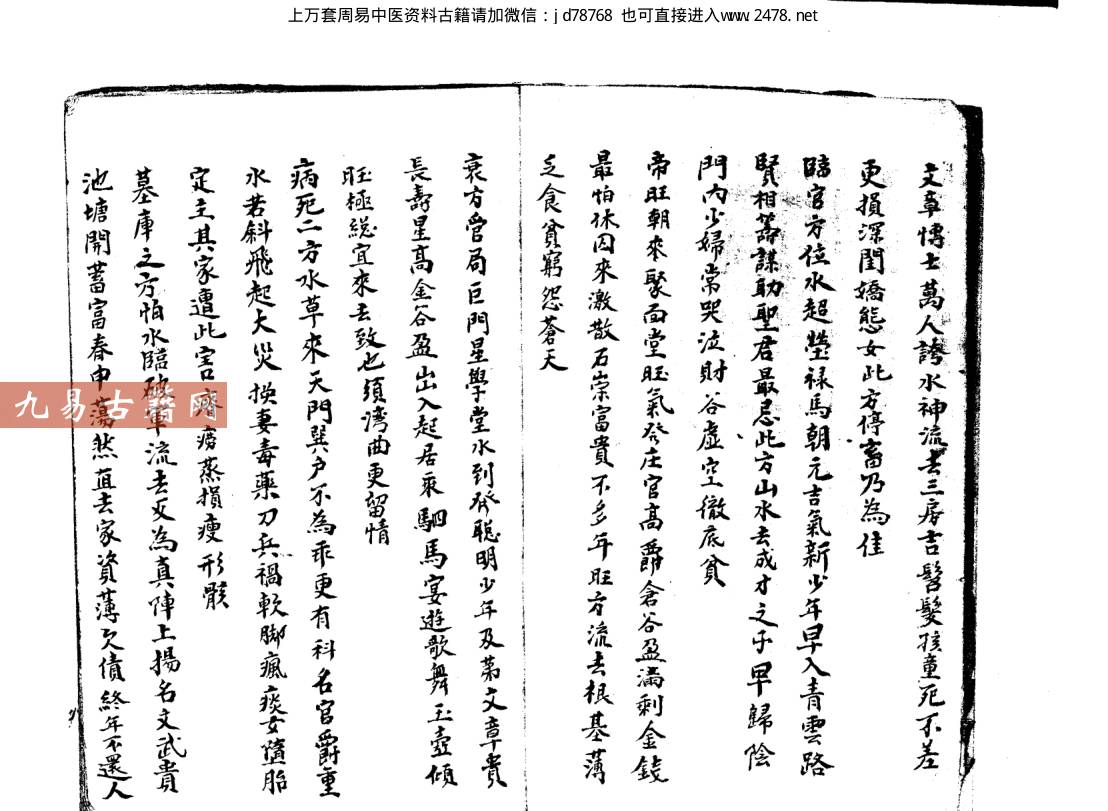 上万套周易中医资料古籍请加微信：jd78768 也可直接进入www.2478.net
文章博士萬人誇水神流去三房吉髫髮孩童死不差
更損深閨嬌態女此方停畜乃為佳
臨官方位水超瑩禄馬朝元吉氣新少年早入青雲路
賢相籌謀助聖君最忌此方山水去成才之子早歸陰
門內少婦常哭泣財谷虛空徹底貧
帝旺朝來聚面堂旺氣發庄官高爵倉谷盈滿剩金錢
最怕休囚來激散石崇富貴不多年旺方流去根基薄
乏食貧窮怨蒼天
衰方管局巨門星學堂水到發聰明少年及第文章貴
長壽星高金谷盈出入起居乘駟馬宴遊歌舞玉壺傾
旺極総宜來去致也須湾曲更留情
病死二方水草來天門巽户不為乖更有科名官爵重
水若斜飛起大災換妻毒藥刀兵禍軟脚瘋痰女隨胎
定主其家遭此害癆蒸損瘦形骸
墓庫之方怕水臨破軍流去反為真陣上揚名文武貴
池塘開蓄富春申蕩然直去家資薄欠債終年不還人
九易古籍网